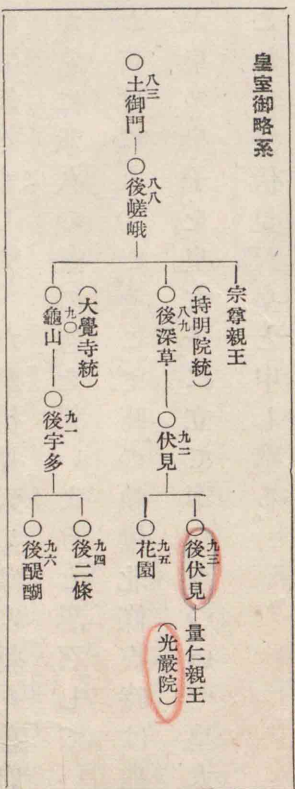 皇室御略系
八三
○土御門
八八
○後嵯峨
宗尊親王
(持明院統)
八九
○後深草
九二
○伏見
九三
○後伏見
量仁親王
(光嚴院)
九五
○花園
(大覺寺統)
九〇
○龜山
九一
○後宇多
九四
○後二條
九六
○後醍醐